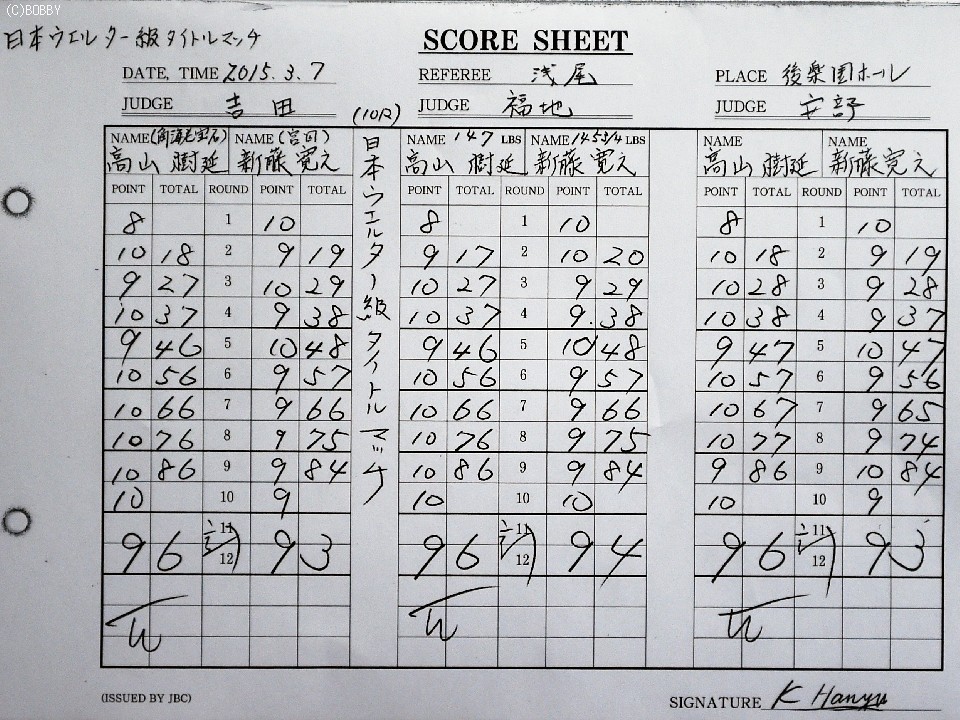 (C)BOBBY
日本ウエルター級タイトルマッチ
SCORE SHEET
DATE, TIME 2015.3.7 REFEREE 浅尾 PLACE 後楽園ホール
JUDGE 吉田 (10R) JUDGE 福地 JUDGE 安部
日本ウエルター級タイトルマッチ
NAME (角海老宝石) NAME (宮田) NAME 147 LBS NAME 145 3/4 LBS NAME NAME
高山 樹延 新藤 寛之 高山 樹延 新藤 寛之 高山 樹延 新藤 寛之
POINT TOTAL ROUND POINT TOTAL POINT TOTAL ROUND POINT TOTAL POINT TOTAL ROUND POINT TOTAL
8 1 10 8 1 10 8 1 10
10 18 2 9 19 9 17 2 10 20 10 18 2 9 19
9 27 3 10 29 10 27 3 9 29 10 28 3 9 28
10 37 4 9 38 10 37 4 9 38 10 38 4 9 37
9 46 5 10 48 9 46 5 10 48 9 47 5 10 47
10 56 6 9 57 10 56 6 9 57 10 57 6 9 56
10 66 7 9 66 10 66 7 9 66 10 67 7 9 65
10 76 8 9 75 10 76 8 9 75 10 77 8 9 74
10 86 9 9 84 10 86 9 9 84 9 86 9 10 84
10 10 9 10 10 10 10 10 9
11 11 11
96 93 96 94 96 93
12 12 12
W W W
(ISSUED BY JBC) SIGNATURE K Hanyu